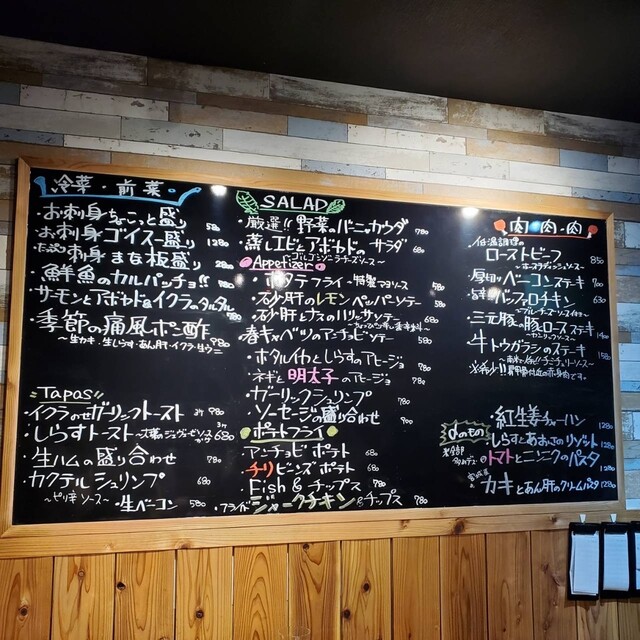 冷菜・前菜
・お刺身ちょこっと盛り 580
・お刺身ゴイスー盛り 1280
・お刺身まな板盛り 2180
・鮮魚のカルパッチョ!! 780
・サーモンとアボカド&イクラのタルタル
・季節の痛風ポン酢 980
〜生カキ・生しらす・あん肝・イクラ・生ウニ〜
Tapas
・イクラのせガーリックトースト
・しらすトースト 680
・生ハムの盛り合わせ 780
・カクテルシュリンプ 680
〜ピリ辛ソース〜
・生ベーコン 580
SALAD
・厳選!!野菜のバーニャカウダ 780
・蒸しエビとアボカドのサラダ 680
〜ゴルゴンゾーラチーズソース〜
Appetizer
・ホタテフライ〜特製マヨソース 580
・砂肝のレモンペッパーソテー 580
・砂肝とナスのハリッサソテー 680
・春キャベツのアンチョビソテー 580
・ホタルイカとしらすのアヒージョ 780
・ネギと明太子のアヒージョ 780
・ガーリックシュリンプ 780
・ソーセージの盛り合わせ 900
ポテトフライ
・アンチョビポテト 680
・チリビーンズポテト 680
・Fish&チップス 780
・フライドジャークチキン&チップス 780
肉・肉・肉
・低温調理のローストビーフ 850
〜ホースラディッシュソース〜
・厚切りベーコンステーキ 700
・バッファロチキン 630
〜ブルーチーズソース付き〜
・三元豚の豚ロースステーキ 1400
・牛トウガラシのステーキ 1580
〜チミチュリソース〜
〆のもの
・紅生姜チャーハン 1280
・しらすとあおさのリゾット 1280
・トマトとニンニクのパスタ 1280
・カキとあん肝のクリームパスタ 1280